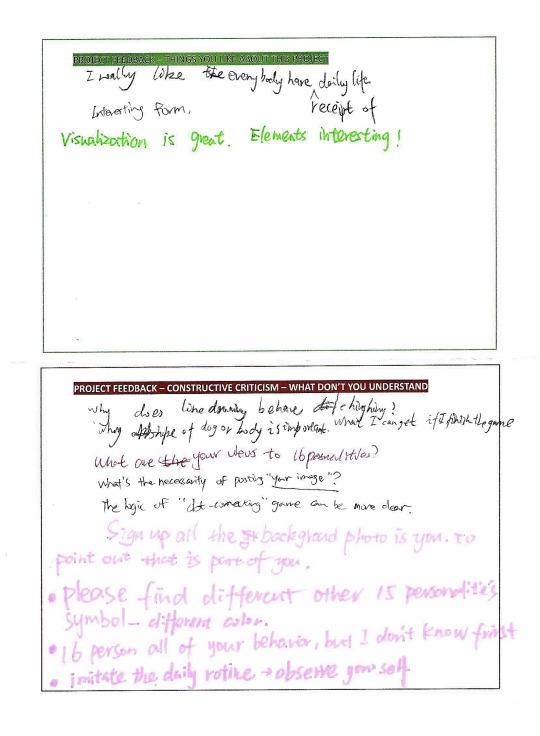 PROJECT FEEDBACK – THINGS YOU LIKE ABOUT THIS PROJECT
I really like everybody have daily life
Interesting form. receipt of
Visualization is great. Elements interesting!
PROJECT FEEDBACK – CONSTRUCTIVE CRITICISM – WHAT DON'T YOU UNDERSTAND
why does line drawing behave
why of dog or body is important. What I can get if I finish the game
What are your views to 16 personalities?
What's the necessity of posting "your image"?
The logic of "dot-connecting" game can be more clear.
Sign up all the background photo is you. To
point out that is part of you.
• Please find different other 15 personalities
symbol – different color.
• 16 person all of your behavior, but I don't know
• imitate the daily rotine → observe your self